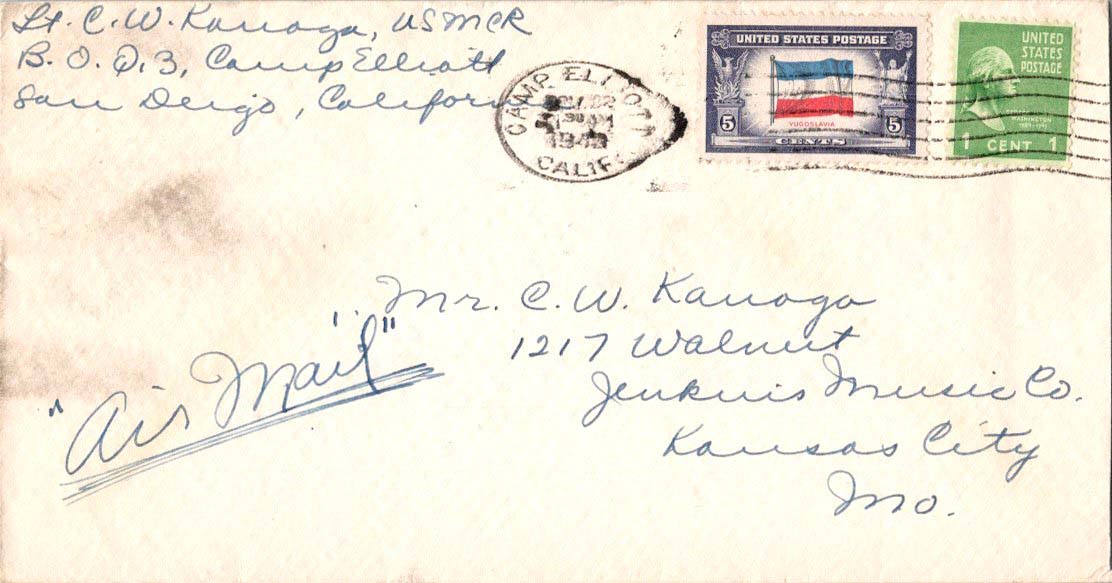 Lt. C. W. Kanaga, USMCR
B. O. Q. 3, Camp Elliott
San Deigo, Californ
CAMP ELLIOTT
1943
CALIF.
UNITED STATES POSTAGE
YUGOSLAVIA
5 5
CENTS
UNITED
STATES
POSTAGE
WASHINGTON
1 CENT 1
Mr. C. W. Kanaga
1217 Walnut
Jenkins Music Co.
Kansas City
Mo.
"Air Mail"